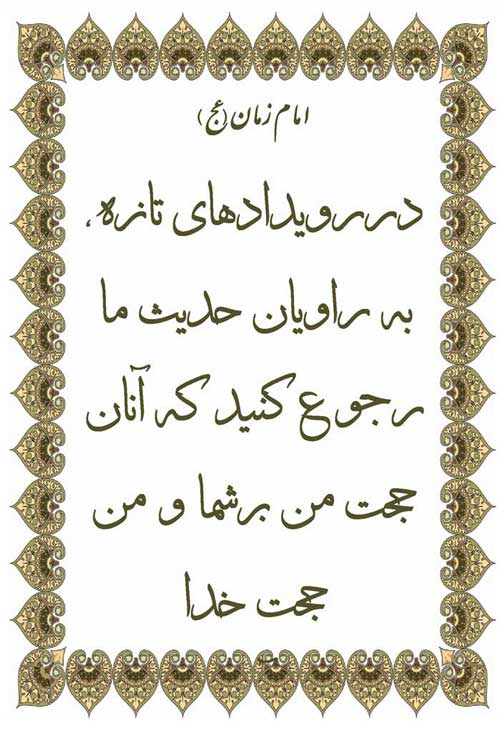 امام زمان (عج)
در رویدادهای تازه،
به راویان حدیث ما
رجوع کنید که آنان
حجت من بر شما و من
حجت خدا